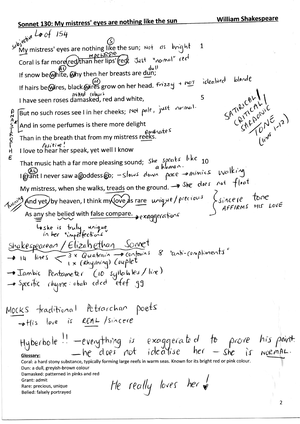 Sonnet 130: My mistress' eyes are nothing like the sun William Shakespeare
of 154
My mistress' eyes are nothing like the sun; not as bright 1
Coral is far more red than her lips' red: Just "normal" red
If snow be white, why then her breasts are dun;
If hairs be wires, black wires grow on her head. frizzy + not idealised blonde
I have seen roses damasked, red and white, 5
But no such roses see I in her cheeks; not pale, just normal.
And in some perfumes is there more delight
Than in the breath that from my mistress reeks.
I love to hear her speak, yet well I know
That music hath a far more pleasing sound; She speaks like 10
a human.
I grant I never saw a goddess go; - slows down pace → mimics walking
My mistress, when she walks, treads on the ground. → She does not float
And yet, by heaven, I think my love as rare unique/precious
As any she belied with false compare. → exaggerations
SATIRICAL
CRITICAL
TONE
(line 1-12)
sincere tone
AFFIRMS HIS LOVE
↳ she is truly unique
in her "imperfections"
Shakespearean / Elizabethan Sonnet
- 14 lines 3 x Quatrain → contains 8 "anti-compliments"
1 x (Rhyming) Couplet
- Iambic Pentameter (10 syllables/line)
- Specific rhyme: abab cdcd efef gg
MOCKS traditional Petrarchan poets
→ His love is REAL / sincere
Hyperbole!! - everything is exaggerated to prove his point.
- he does not idealise her - she is NORMAL.
Glossary:
Coral: a hard stony substance, typically forming large reefs in warm seas. Known for its bright red or pink colour.
Dun: a dull, greyish-brown colour
Damasked: patterned in pinks and red
Grant: admit
Rare: precious, unique
Belied: falsely portrayed
He really loves her!
2